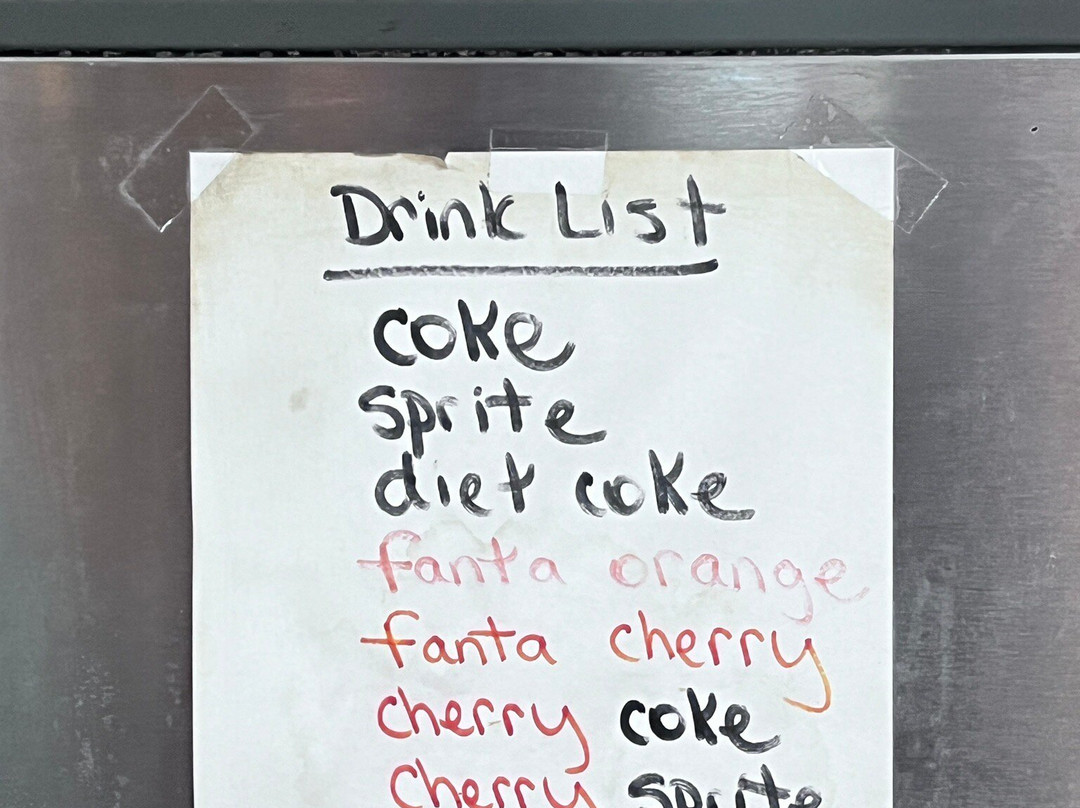 Drink List
coke
sprite
diet coke
fanta orange
fanta cherry
cherry coke
cherry sprite